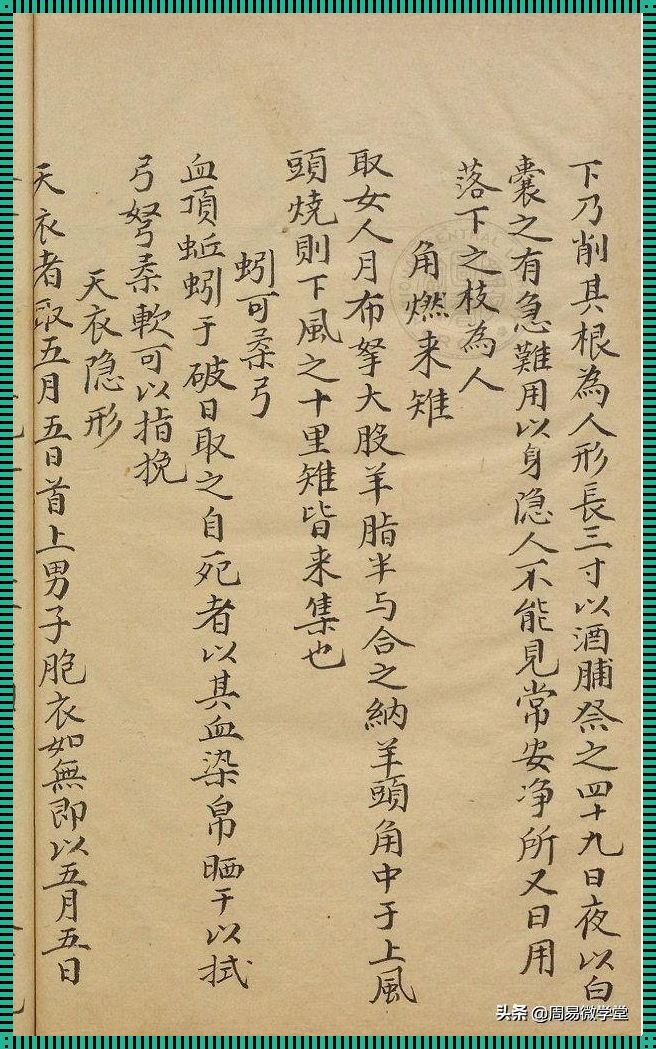 下乃削其根為人形長三寸以酒脯祭之四十九日夜以白
囊之有急難用以身隐人不能見常安净所又日用
落下之枝為人
角燃来雉
取女人月布拏大股羊脂半与合之納羊頭角中于上風
頭燒則下風之十里雉皆来集也
蚓可柔弓
血項蚯蚓于破日取之自死者以其血染帛晒干以拭
弓弩柔軟可以指挽
天衣隐形
天衣者取五月五日首上男子胞衣如無即以五月五日
头条 @周易微学堂